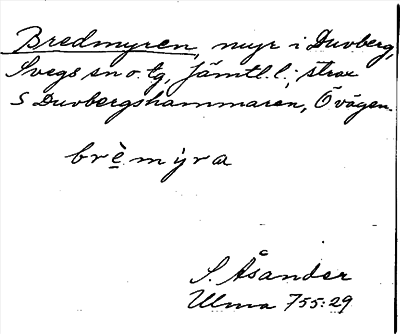 Bredmyren, myr i Duvberg,
Svegs sn o. tg, Jämtl. l.; strax
S Duvbergshammaren, Ö vägen.
brèmyra
S. Åsander
Ulma 755:29